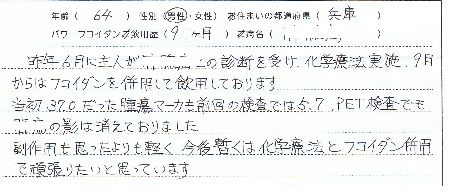 年齢( 64 ) 性別(男性・女性) お住まいの都道府県( 兵庫 )
パワーフコイダン飲用歴( 9ヶ月 ) お病名(
昨年6月に主人が の診断を受け、化学療法実施、9月
からはフコイダンを併用して飲用しております
当初390だった腫瘍マーカも前回の検査では5.7、PET検査でも
の影は消えておりました
副作用も思ったよりも軽く 今後暫くは化学療法とフコイダン併用
で頑張りたいと思っています